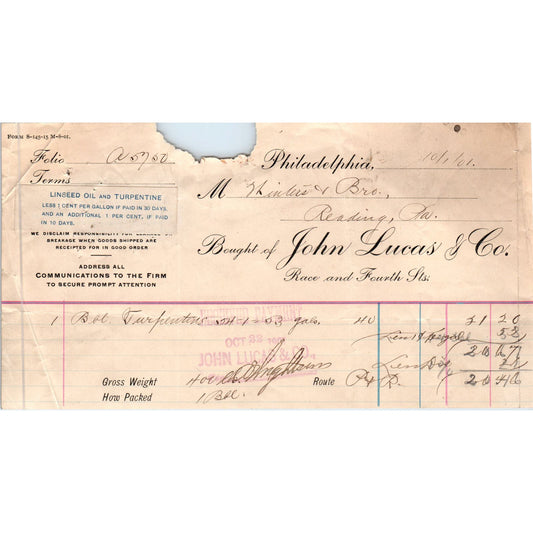 FORM S-143-15 M-8-01.
Folio A5750
Philadelphia, 10/1/01.
Terms
M Winters & Bro,
LINSEED OIL AND TURPENTINE
LESS 1 CENT PER GALLON IF PAID IN 30 DAYS
AND AN ADDITIONAL 1 PER CENT, IF PAID
IN 10 DAYS.
Reading, Pa.
WE DISCLAIM RESPONSIBILITY FOR
BREAKAGE WHEN GOODS SHIPPED ARE
RECEIPTED FOR IN GOOD ORDER
Bought of John Lucas & Co.
Race and Fourth Sts.
ADDRESS ALL
COMMUNICATIONS TO THE FIRM
TO SECURE PROMPT ATTENTION
1 Bbl. Turpentine 54-1-53 gals. 40 21 20
RECEIVED PAYMENT
OCT 22 1901
JOHN LUCAS & CO.
53
20 67
Gross Weight 400 Route P & R. 20 46
How Packed 1 Bbl.